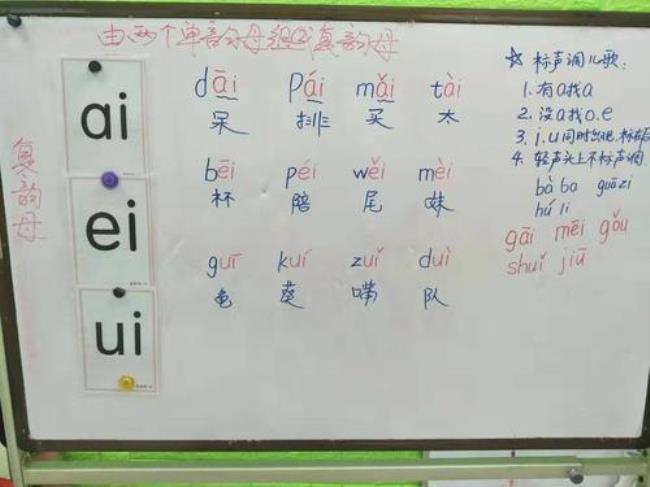 由两个单韵母组成复韵母
复韵母
ai
ei
ui
dāi pái mǎi tài
呆 排 买 太
bēi péi wěi mèi
杯 陪 尾 妹
guī kuí zuǐ duì
龟 葵 嘴 队
☆ 标声调儿歌:
1. 有a找a
2. 没a找o.e
3. i.u同时出现,标在后
4. 轻声头上不标声调.
bà ba guāzi
hú li
gāi mēi gǒu
shuǐ jiū